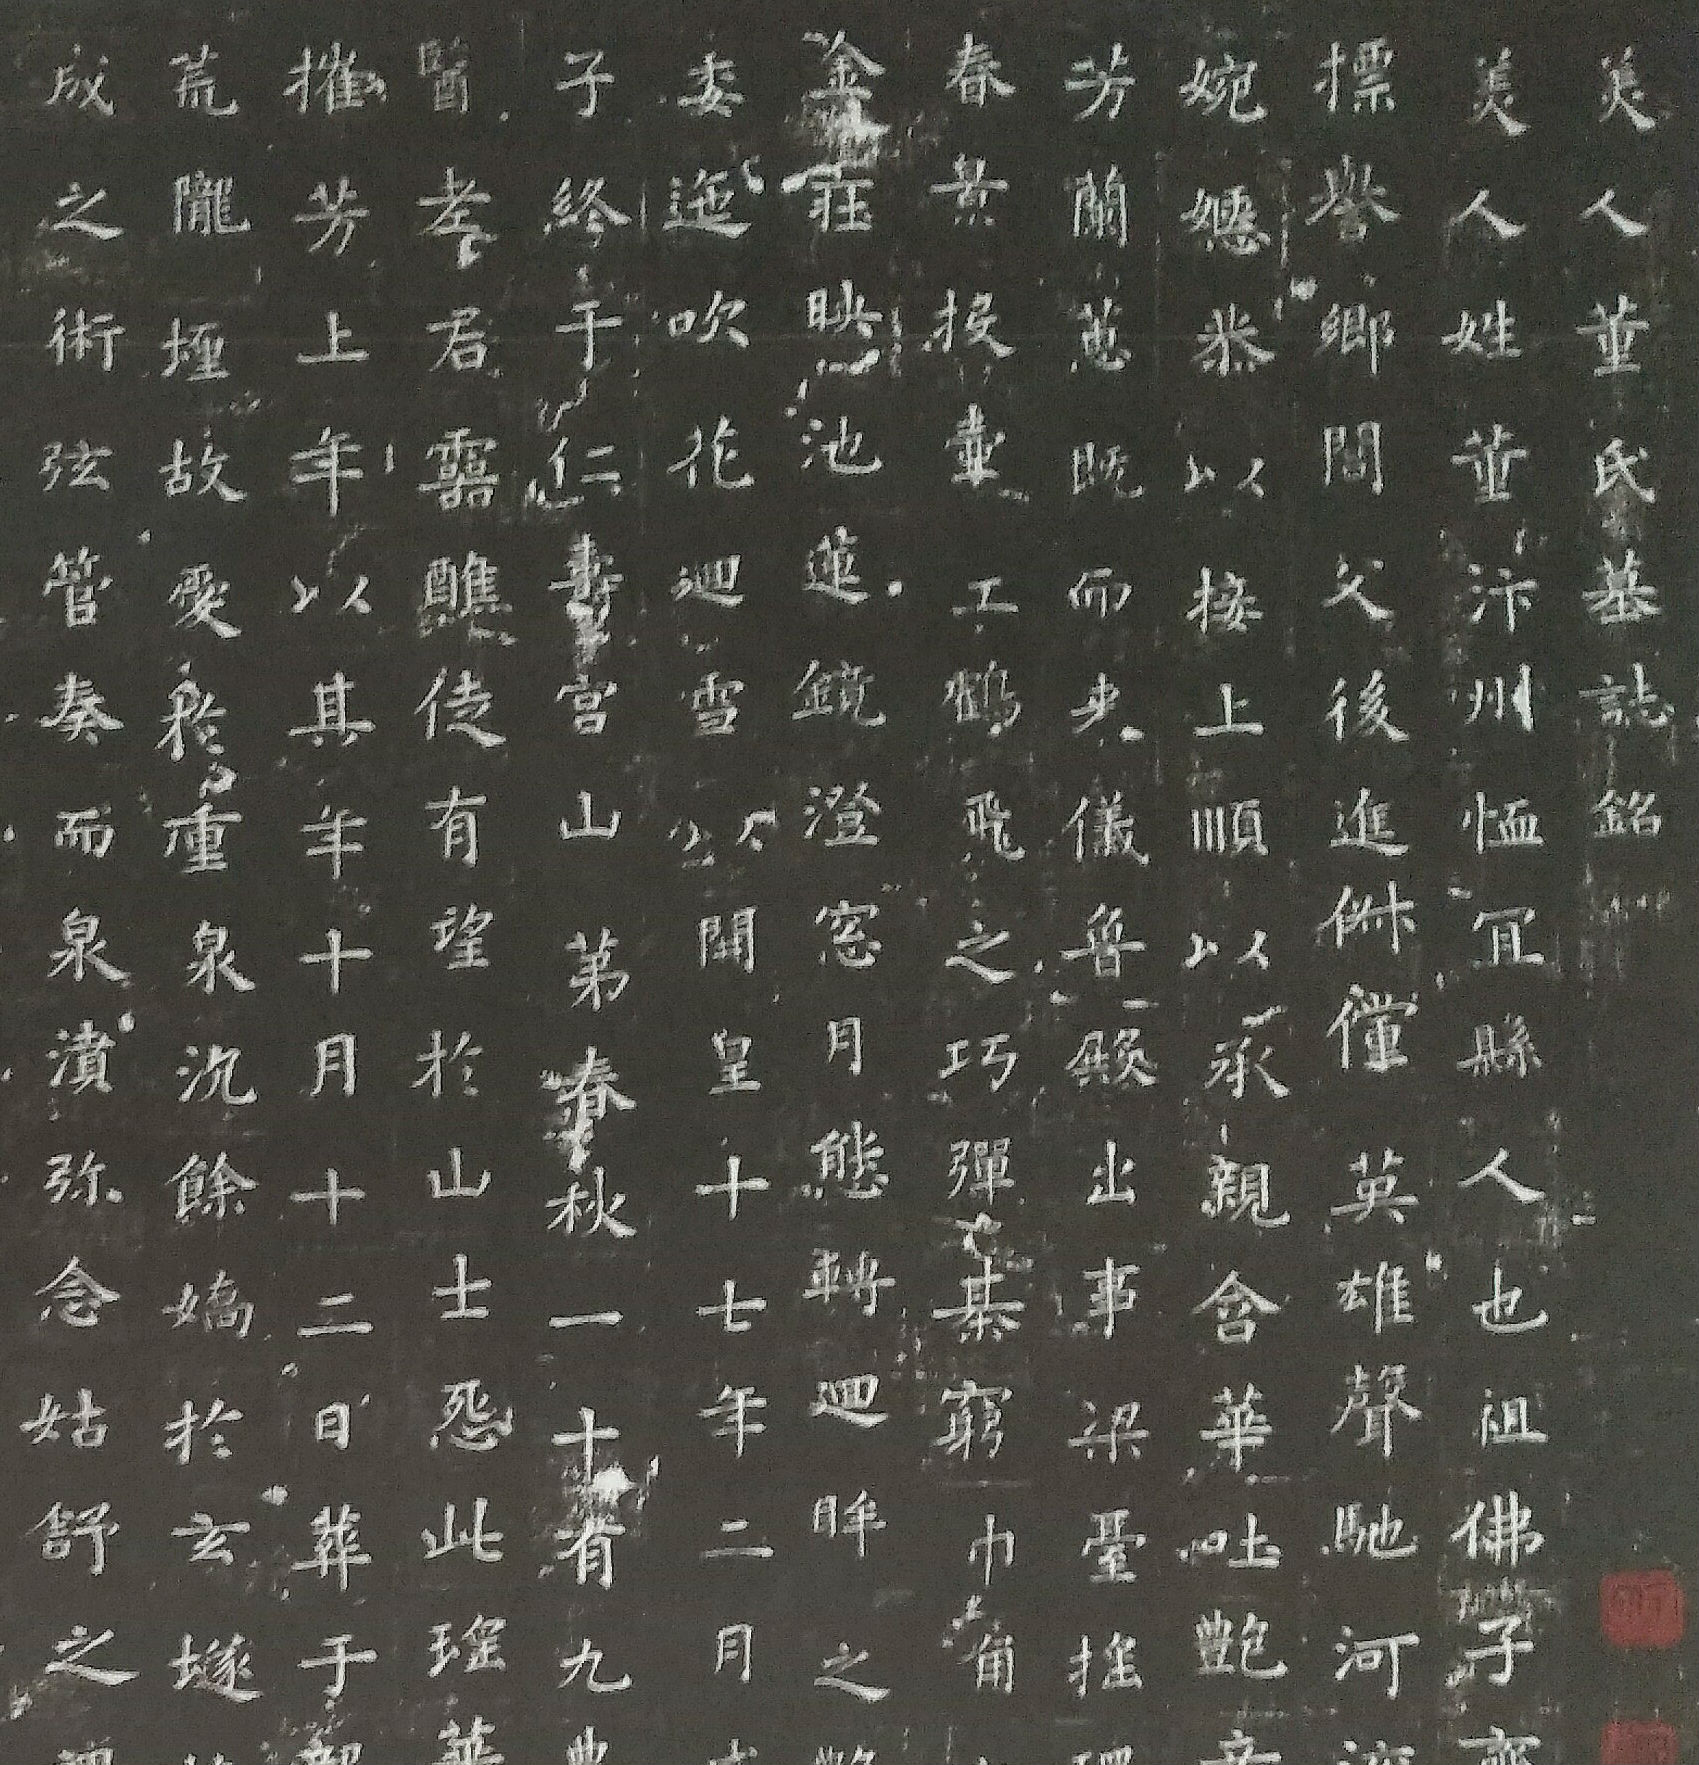 美人董氏墓誌銘
美人姓董汴州恤冝縣人也祖佛子齊
摽譽鄉閭父後進俶儻英雄聲馳河
婉嬺恭以接上順以承親含華吐艷竒
芳蘭蕙既而來儀魯殿出事梁臺搖環
春景投壷工鶴飛之巧彈棊窮巾角
釜莊映池蓮鏡澄窓月態轉迴眸之艷
委迤吹花迴雪以開皇十七年二月
子終于仁壽宮山苐春秋一十有九農
醫老君靈醮徒有望於山士怨此瑤華
摧芳上年以其年十月十二日葬于
荒隴埋故愛於重泉沉餘嬌於玄墜
成之術弦管奏而泉濆弥念姑舒之